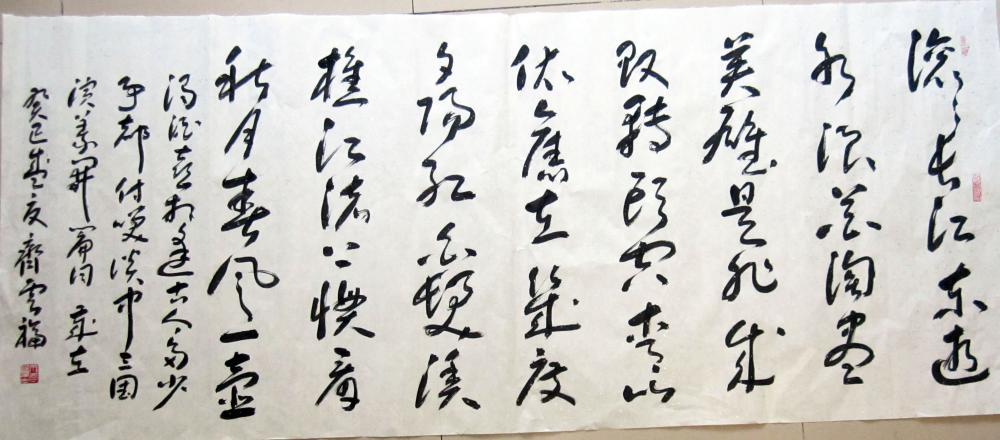 滚滚长江东逝
水浪花淘尽
英雄是非成
败转头空青山
依舊在几度
夕阳红白发渔
樵江渚上惯看
秋月春风一壶
浊酒喜相逢古今多少
事都付笑谈中三国
演义开篇词 岁在
癸巳盛夏齊雲福